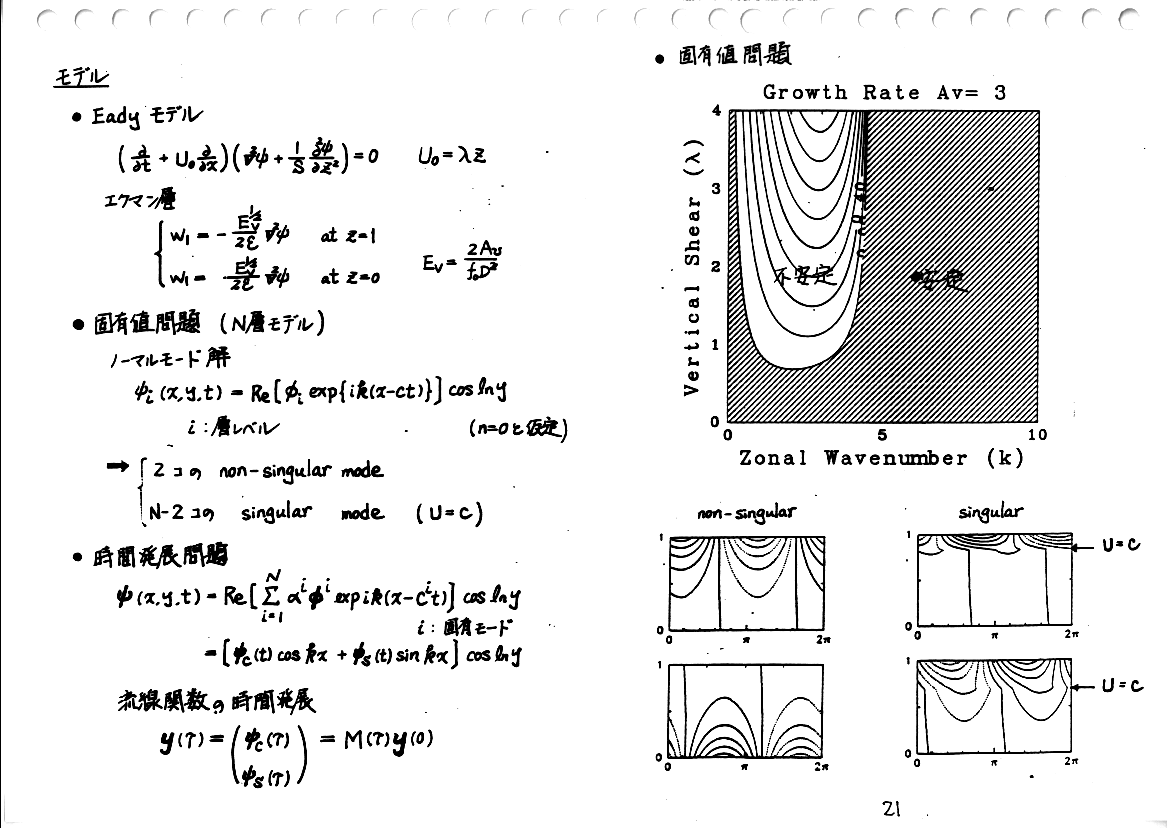 モデル
• Eady モデル
(∂/∂t + U₀ ∂/∂x)(∇²ψ + 1/S ∂²ψ/∂z²) = 0   U₀ = λz
エクマン層
W₁ = - E_V^{1/2}/2ε ∇²ψ   at z=1
W₁ = E_V^{1/2}/2ε ∇²ψ   at z=0
E_V = 2A_v/f₀D²
• 固有値問題 (N層モデル)
ノーマルモード解
ψᵢ(x,y,t) = Re[φᵢ exp{ik(x-ct)}] cos lny
i : 層レベル   (n=0と仮定)
➡ 2コの non-singular mode
N-2コの singular mode (U=c)
• 時間発展問題
ψ(x,y,t) = Re[Σ_{i=1}^{N} αⁱφⁱ exp ik(x-cⁱt)] cos lny
i : 固有モード
= [ψc(t) cos kx + ψs(t) sin kx] cos lny
流線関数の時間発展
y(τ) = (ψc(τ) ψs(τ)) = M(τ)y(0)
• 固有値問題
Growth Rate Av= 3
Vertical Shear (λ)
4
3
2
1
0
不安定
安定
0 5 10
Zonal Wavenumber (k)
non-singular
1
0
0 π 2π
singular
1
0
U=c
0 π 2π
1
0
0 π 2π
1
0
U=c
0 π 2π
21